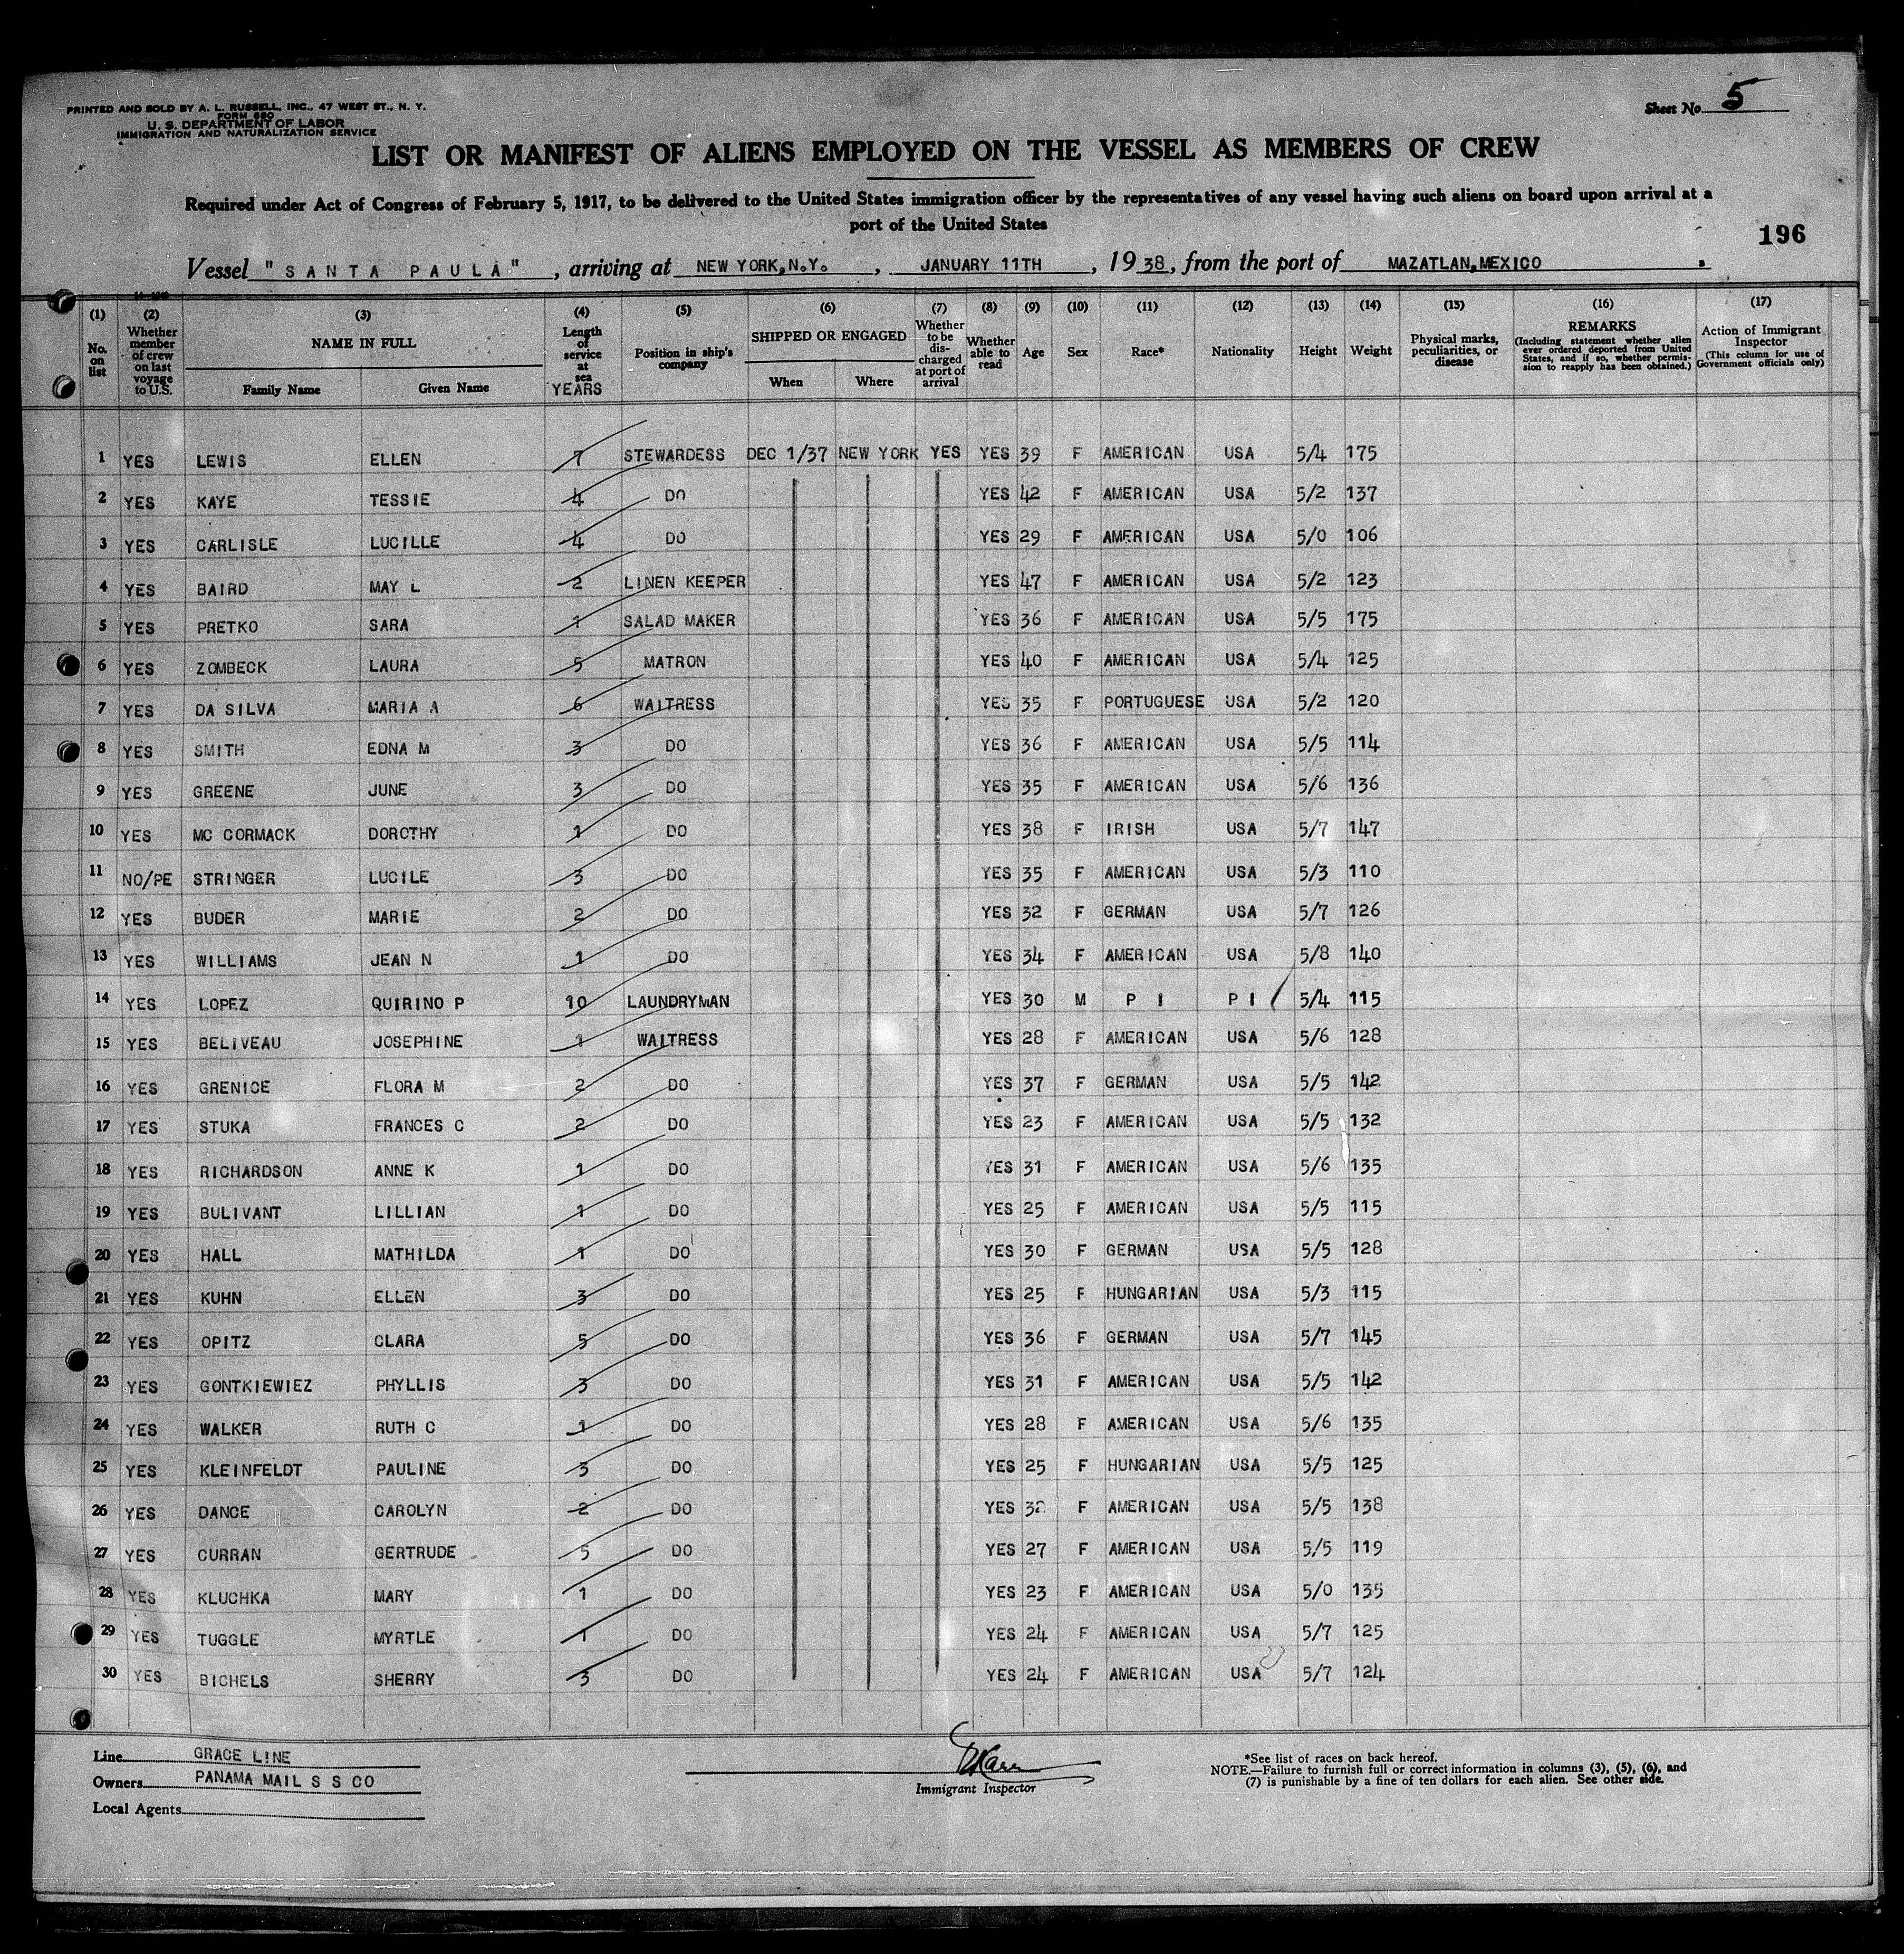 PRINTED AND SOLD BY A. L. RUSSELL, INC., 47 WEST ST., N. Y.
FORM 680
U. S. DEPARTMENT OF LABOR
IMMIGRATION AND NATURALIZATION SERVICE
Sheet No. 5
LIST OR MANIFEST OF ALIENS EMPLOYED ON THE VESSEL AS MEMBERS OF CREW
Required under Act of Congress of February 5, 1917, to be delivered to the United States immigration officer by the representatives of any vessel having such aliens on board upon arrival at a
port of the United States
196
Vessel "SANTA PAULA", arriving at NEW YORK,N.Y., JANUARY 11TH, 1938, from the port of MAZATLAN,MEXICO.
(1) No. on list
(2) Whether member of crew on last voyage to U.S.
(3) NAME IN FULL
Family Name
Given Name
(4) Length of service at sea YEARS
(5) Position in ship's company
(6) SHIPPED OR ENGAGED
When
Where
(7) Whether to be discharged at port of arrival
(8) Whether able to read
(9) Age
(10) Sex
(11) Race*
(12) Nationality
(13) Height
(14) Weight
(15) Physical marks, peculiarities, or disease
(16) REMARKS (Including statement whether alien ever ordered deported from United States, and if so, whether permission to reapply has been obtained.)
(17) Action of Immigrant Inspector (This column for use of Government officials only)
1 YES LEWIS ELLEN 7 STEWARDESS DEC 1/37 NEW YORK YES YES 39 F AMERICAN USA 5/4 175
2 YES KAYE TESSIE 4 DO YES 42 F AMERICAN USA 5/2 137
3 YES CARLISLE LUCILLE 4 DO YES 29 F AMERICAN USA 5/0 106
4 YES BAIRD MAY L 2 LINEN KEEPER YES 47 F AMERICAN USA 5/2 123
5 YES PRETKO SARA 1 SALAD MAKER YES 36 F AMERICAN USA 5/5 175
6 YES ZOMBECK LAURA 5 MATRON YES 40 F AMERICAN USA 5/4 125
7 YES DA SILVA MARIA A 6 WAITRESS YES 35 F PORTUGUESE USA 5/2 120
8 YES SMITH EDNA M 3 DO YES 36 F AMERICAN USA 5/5 114
9 YES GREENE JUNE 3 DO YES 35 F AMERICAN USA 5/6 136
10 YES MC CORMACK DOROTHY 1 DO YES 38 F IRISH USA 5/7 147
11 NO/PE STRINGER LUCILE 3 DO YES 35 F AMERICAN USA 5/3 110
12 YES BUDER MARIE 2 DO YES 32 F GERMAN USA 5/7 126
13 YES WILLIAMS JEAN N 1 DO YES 34 F AMERICAN USA 5/8 140
14 YES LOPEZ QUIRINO P 10 LAUNDRYMAN YES 30 M P I P I 5/4 115
15 YES BELIVEAU JOSEPHINE 1 WAITRESS YES 28 F AMERICAN USA 5/6 128
16 YES GRENICE FLORA M 2 DO YES 37 F GERMAN USA 5/5 142
17 YES STUKA FRANCES C 2 DO YES 23 F AMERICAN USA 5/5 132
18 YES RICHARDSON ANNE K 1 DO YES 31 F AMERICAN USA 5/6 135
19 YES BULIVANT LILLIAN 1 DO YES 25 F AMERICAN USA 5/5 115
20 YES HALL MATHILDA 1 DO YES 30 F GERMAN USA 5/5 128
21 YES KUHN ELLEN 3 DO YES 25 F HUNGARIAN USA 5/3 115
22 YES OPITZ CLARA 5 DO YES 36 F GERMAN USA 5/7 145
23 YES GONTKIEWIEZ PHYLLIS 3 DO YES 31 F AMERICAN USA 5/5 142
24 YES WALKER RUTH C 1 DO YES 28 F AMERICAN USA 5/6 135
25 YES KLEINFELDT PAULINE 3 DO YES 25 F HUNGARIAN USA 5/5 125
26 YES DANCE CAROLYN 2 DO YES 32 F AMERICAN USA 5/5 138
27 YES CURRAN GERTRUDE 5 DO YES 27 F AMERICAN USA 5/5 119
28 YES KLUCHKA MARY 1 DO YES 23 F AMERICAN USA 5/0 135
29 YES TUGGLE MYRTLE 1 DO YES 24 F AMERICAN USA 5/7 125
30 YES BICHELS SHERRY 3 DO YES 24 F AMERICAN USA 5/7 124
Line GRACE LINE
Owners PANAMA MAIL S S CO
Local Agents
Immigrant Inspector
*See list of races on back hereof.
NOTE.—Failure to furnish full or correct information in columns (3), (5), (6), and
(7) is punishable by a fine of ten dollars for each alien. See other side.